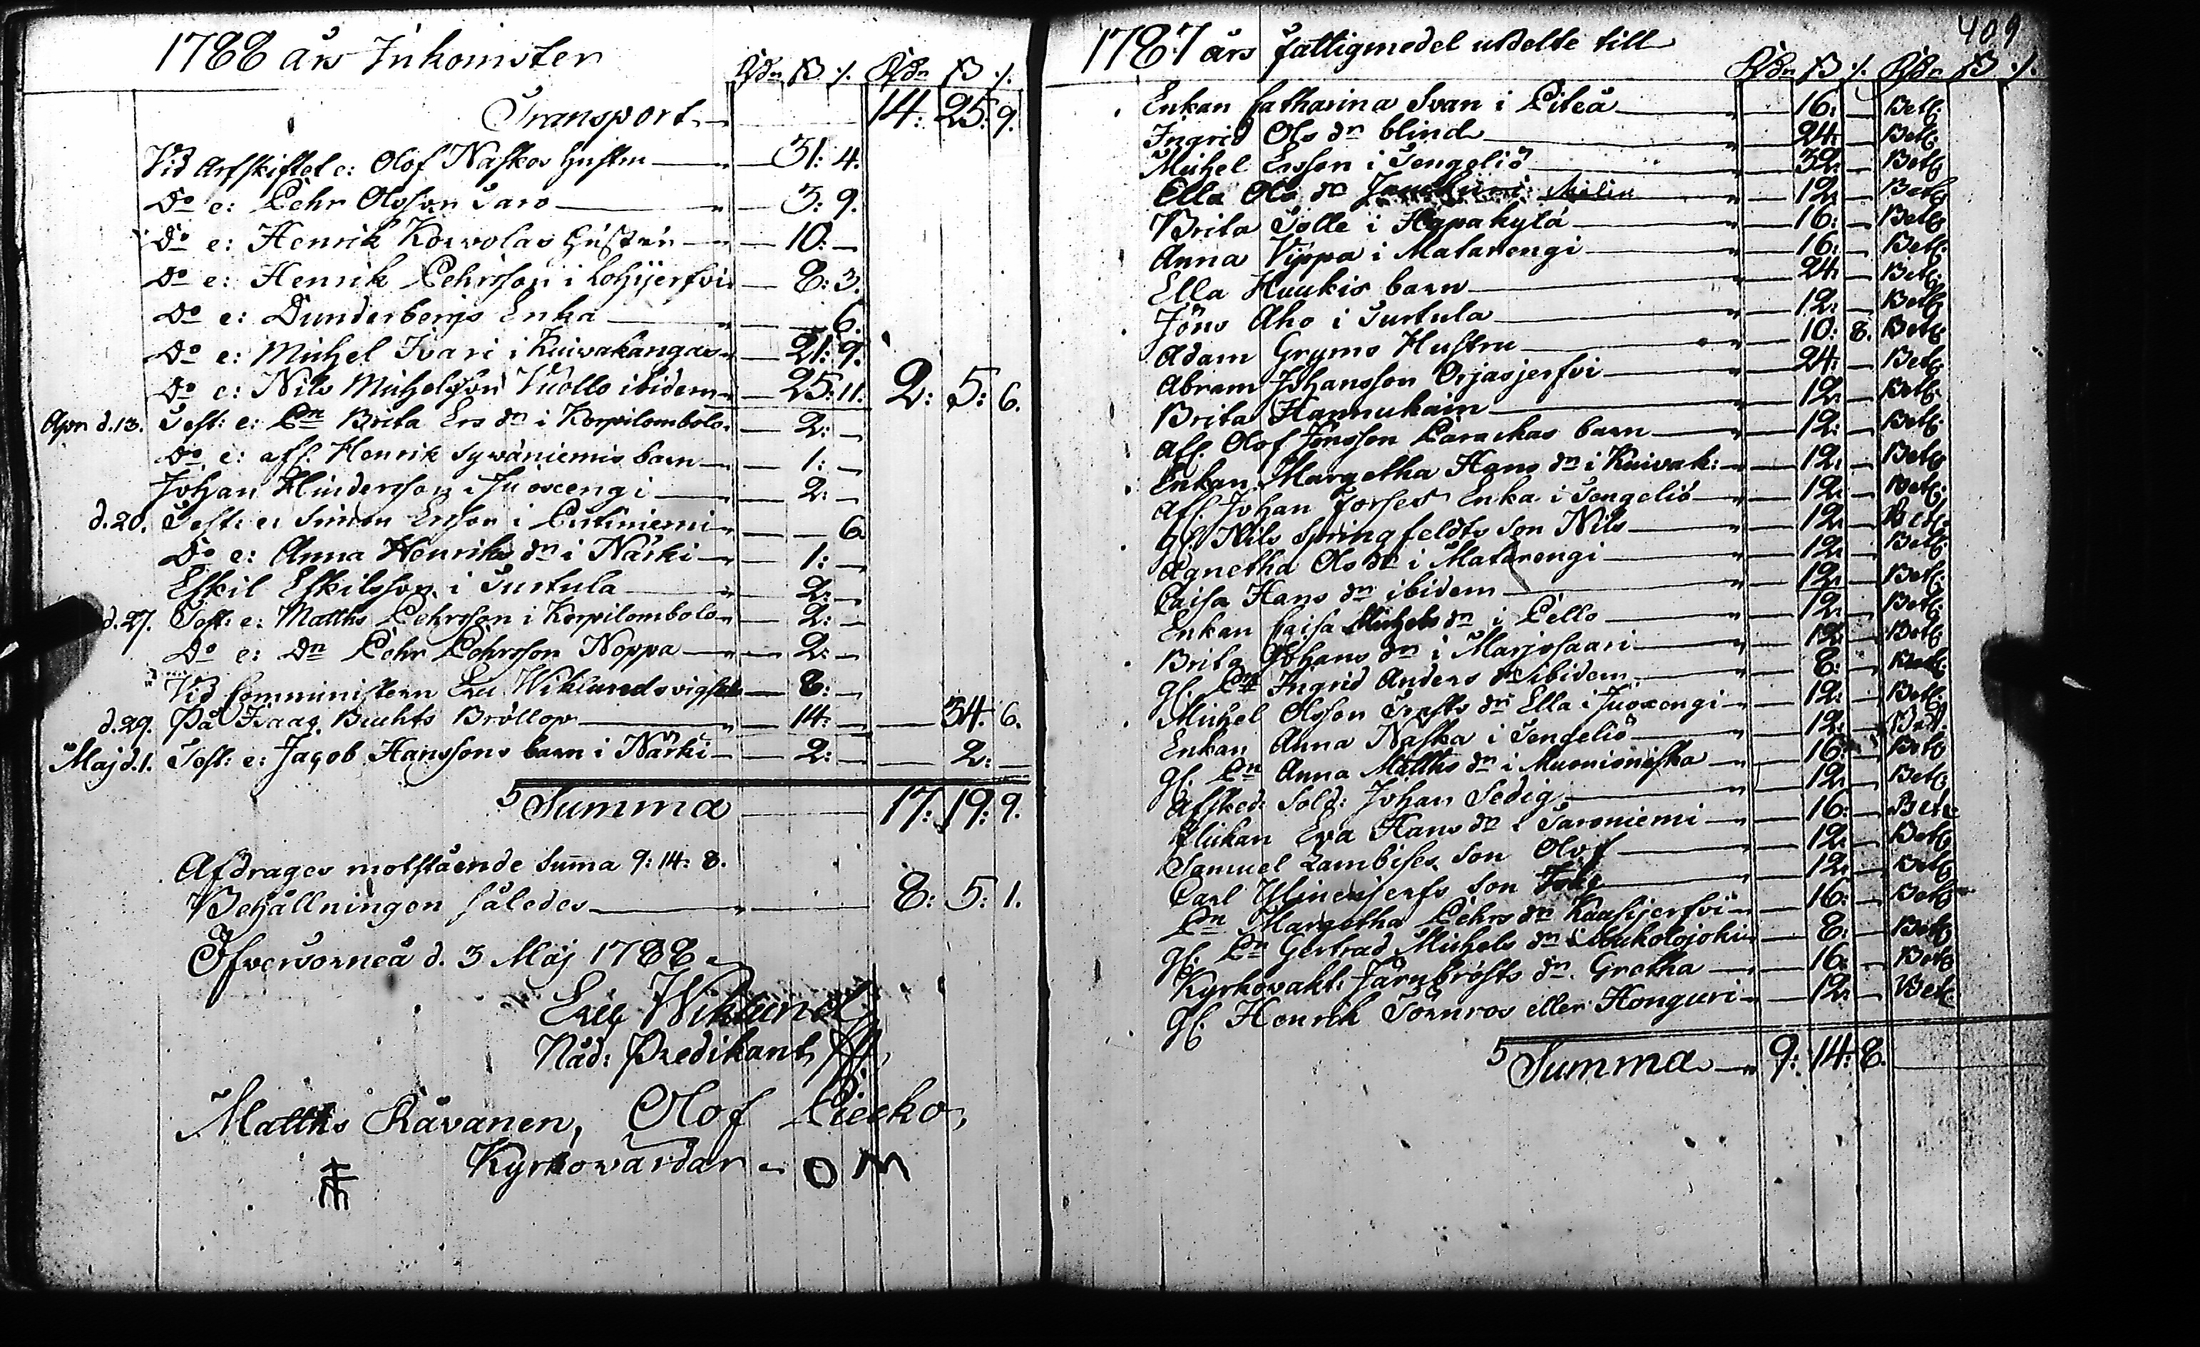 1788 års Inkomster
Rdr ß /. Rdr ß /.
Transport 14: 25: 9.
Vid Arfskiftet e: Olof Naskos hustru 31: 4.
Do e: Pehr Olofson Saro 3: 9.
Do e: Henrik Korvolas hustru 10: –
Do e: Henrik Pehrsson i Lohijerfvi 8: 3.
Do e: Dunderbergs Enka 6.
Do e: Michel Ivari i Kuivakangas 21: 9.
Do e: Nils Michelsson Vuollo ibidem 25: 11. 2: 5: 6.
Apr d. 13. Test: e: Pn Brita Ers dn i Korpilombolo 2: –
Do e: afl. Henrik Syväniemis barn 1: –
Johan Hindersson i Juoxengi 2: –
d. 20. Test: e: Simon Ersson i 6.
Do e: Anna Henriks dn i Närki 1: –
Eskil Eskilsson i Turtula 2: –
d. 27. Test: e: Matths Pehrsson i Korpilombolo 2: –
Do e: Dn Pehr Pehrsson Noppa 2: –
Vid Comministern Eric Wiklunds vigsel 8: –
d. 29. På Isaac Buchts Bröllop 14: – 34: 6.
Maj d. 1. Test: e: Jacob Hanssons barn i Närki 2: – 2: –
Summa 17: 19: 9.
Afdrages motstående Summa 9: 14: 8.
Behållningen således 8: 5: 1.
Öfvertorneå d. 3 Maj 1788
Eric Wiklund
Nåd: Predikant
Matths Rävanen, Olof Piecko,
Kyrkovärdar O M
409
1787 års fattigmedel utdelte till
Rdr ß /. Rdr ß /.
Enkan Catharina Svan i Piteå 16: – Bet.
Ingrid Ols dn blind 24: – Bet.
Michel Ersson i Tengeliö 32: – Bet.
Ella Ols dn 12: – Bet.
Brita Tolle i Hapakylä 16: – Bet.
Anna Vippa i Matarengi 16: – Bet.
Ella Haukis barn 24: – Bet.
Jöns Aho i Turtula 12: – Bet.
Adam Gryms Hustru 10: 8. Bet.
Abram Johansson Orjasjerfvi 24: – Bet.
Brita Hannukain 12: – Bet.
Afl. Olof Jönsson Parackas barn 12: – Bet.
Enkan Margetha Hans dn i Kuivak: 12: – Bet.
Afl. Johan Forses Enka i Tengeliö 12: – Bet.
gl. Nils Springfeldts son Nils 12: – Bet.
Agnetha Ols dn i Matarengi 12: – Bet.
Caisa Hans dn ibidem 12: – Bet.
Enkan Caisa Michels dn i Pello 12: – Bet.
Brita Johans dn i Marjosaari 12: – Bet.
gl. Pn Ingrid Anders dn ibidem 8: – Bet.
Michel Olsson Trasts dn Ella i Juoxengi 12: – Bet.
Enkan Anna Naska i Tengeliö 12: – Bet.
gl. Pn Anna Matths dn i Muonioniska 16: – Bet.
Afsked: Sold: Johan Sedig 12: – Bet.
Flickan Eva Hans dn i Saroniemi 16: – Bet.
Samuel Lambises son Olof 12: – Bet.
Carl Ylinenjerfs son 12: – Bet.
Pn Margetha Pehrs dn Kuusijerfvi 16: – Bet.
gl. Pn Gertrud Michels dn i Mukolojoki 8: – Bet.
Kyrkovakt: Järnbrösts dn. Gretha 16: – Bet.
gl. Henrik Törnros eller Honguri 12: – Bet.
Summa 9: 14: 8.